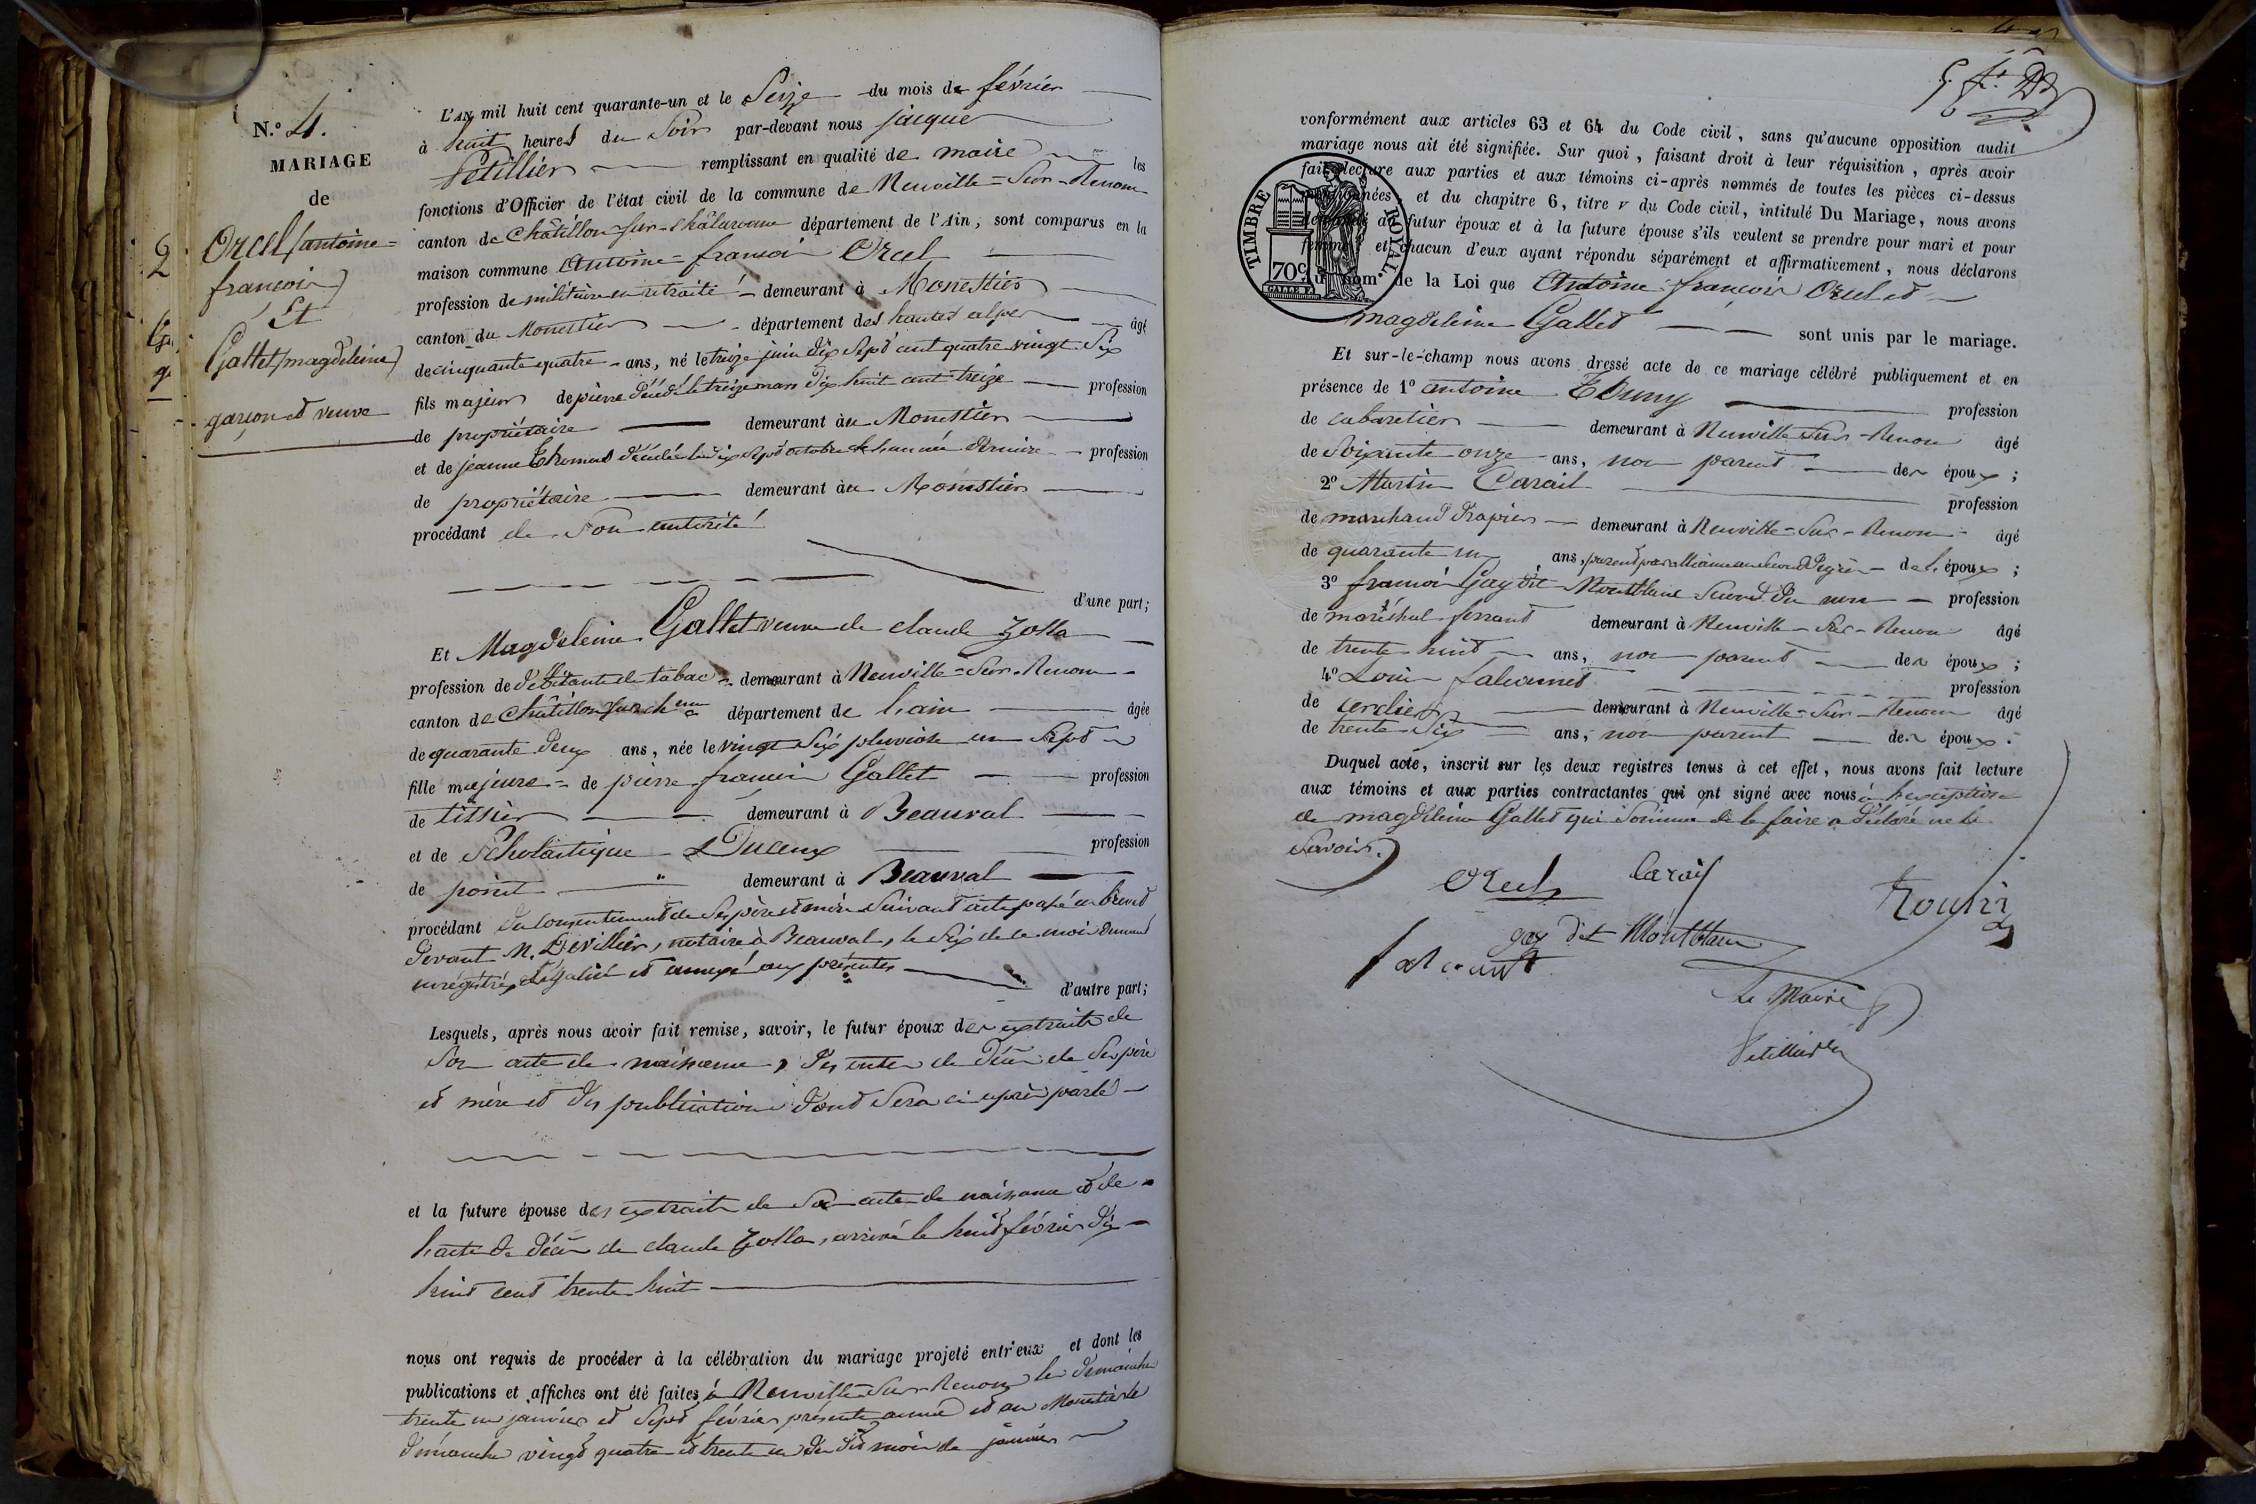 N.º 4.
MARIAGE
de
Orcel (antoine=
francois)
Et
Gallet (magdeleine)
garçon et veuve
L'AN mil huit cent quarante-un et le Seize du mois de février
à huit heures du Soir par-devant nous jacques
Petillier remplissant en qualité de maire les
fonctions d'Officier de l'état civil de la commune de Neuville=Sur=Renom
canton de Châtillon-sur-Chalaronne département de l'Ain, sont comparus en la
maison commune Antoine=francois Orcel
profession de militaire en retraite demeurant à Monestier
canton du Monestier département des hautes alpes âgé
de cinquante quatre ans, né le treize juin dix Sept cent quatre vingt Six
fils majeur de pierre décédé le treize mars dix huit cent treize profession
de propriétaire demeurant au Monestier
et de jeanne Thomas décédée le dix Sept octobre de l'année dernière profession
de propriétaire demeurant au Monestier
procédant de Son autorité
d'une part;
Et Magdeleine Gallet veuve de claude Zolla
profession de débitante de tabac demeurant à Neuville=Sur=Renom
canton de Châtillon sur ch demeurant département de l'ain âgée
de quarante deux ans, née le vingt Six pluviose an Sept
fille majeure de pierre francois Gallet profession
de tissier demeurant à Beauval
et de Scholastique Duceux profession
de point demeurant à Beauval
procédant du consentement de Ses père et mère Suivant acte passé en brevet
devant M. Devillier, notaire à Beauval, le Six de ce mois dument
enrégistré, légalisé et annexé aux présentes
d'autre part;
Lesquels, après nous avoir fait remise, savoir, le futur époux des extraits de
Son acte de naissance, des actes de décès de Ses père
et mère et des publications dont Sera ci après parlé
et la future épouse des extraits de Son acte de naissance et de
l'acte de décès de claude Zolla, arrivé le huit février dix
huit cent trente huit
nous ont requis de procéder à la célébration du mariage projeté entr'eux et dont les
publications et affiches ont été faites à Neuville Sur Renom les dimanches
trente un janvier et Sept février présente année et au Monestier les
dimanches vingt quatre et trente un du dit mois de janvier
conformément aux articles 63 et 64 du Code civil, sans qu'aucune opposition audit
mariage nous ait été signifiée. Sur quoi, faisant droit à leur réquisition, après avoir
fait lecture aux parties et aux témoins ci-après nommés de toutes les pièces ci-dessus
mentionnées, et du chapitre 6, titre v du Code civil, intitulé Du Mariage, nous avons
demandé au futur époux et à la future épouse s'ils veulent se prendre pour mari et pour
femme; et chacun d'eux ayant répondu séparément et affirmativement, nous déclarons
au nom de la Loi que Antoine francois Orcel et
magdeleine Gallet sont unis par le mariage.
TIMBRE ROYAL
70c
Et sur-le-champ nous avons dressé acte de ce mariage célébré publiquement et en
présence de 1º antoine profession
de cabaretier demeurant à Neuville Sur Renom âgé
de Soixante onze ans, non parent des époux;
2º Martin Carail profession
de marchand drapier demeurant à Neuville=Sur=Renom âgé
de quarante un ans, parent par alliance au Second dégré de l'époux;
3º francois Gay dit Montblanc Second du nom profession
de maréchal ferrant demeurant à Neuville-Sur-Renom âgé
de trente huit ans, non parent des époux;
4º Louis profession
de cordier demeurant à Neuville-Sur-Renom âgé
de trente Six ans, non parent des époux.
Duquel acte, inscrit sur les deux registres tenus à cet effet, nous avons fait lecture
aux témoins et aux parties contractantes qui ont signé avec nous à l'exception
de magdeleine Gallet qui Sommée de le faire a déclaré ne le
Savoir.
Orcel Carail
gay dit Montblanc
Le Maire
Petillier